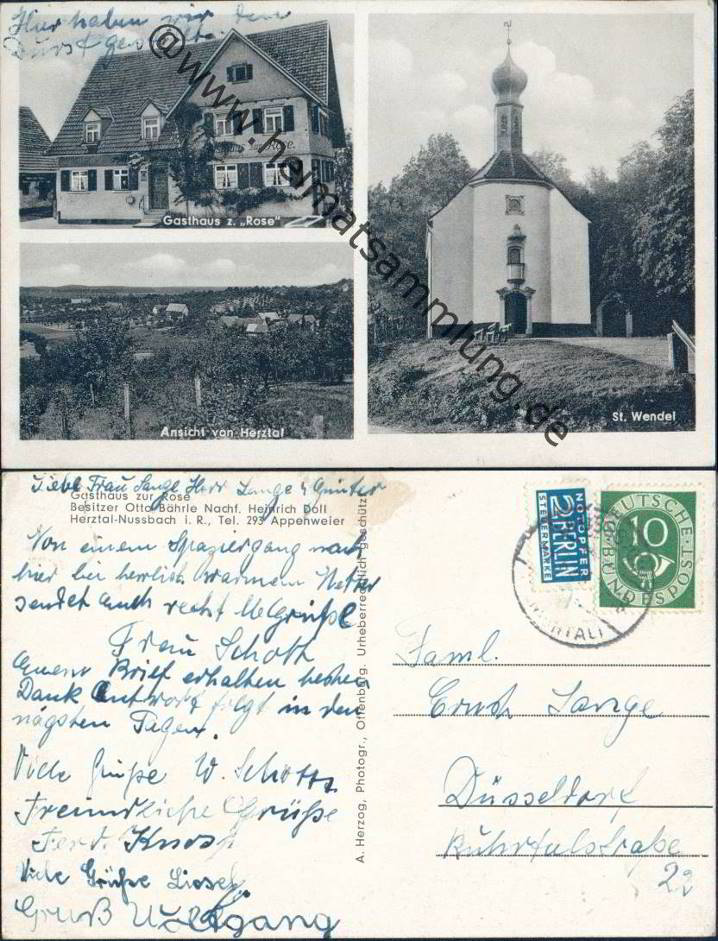 Hier haben wir den
Durst gestillt.
@www.heimatsammlung.de
Rose
Gasthaus z. "Rose"
Ansicht von Herztal
St. Wendel
Liebe Frau Lange Herr Lange & Günter
Gasthaus zur Rose
Besitzer Otto Bährle Nachf. Heinrich Doll
Herztal-Nussbach i. R., Tel. 293 Appenweier
Von einem Spaziergang nach
hier bei herrlich warmem Wetter
sendet auch recht
Frau Schott
Brief erhalten besten
Dank Antwort folgt in den
nägsten Tagen.
Viele Grüße W. Schott
Freundliche Grüße
Ferd.
Viele Grüße Liesel
Gruß Wolfgang
A. Herzog, Photogr., Offenburg. Urheberrechtlich geschützt
NOTOPFER
2 BERLIN
STEUERMARKE
DEUTSCHE
10
BUNDESPOST
Faml.
Ernst Lange
Düsseldorf
Ruhrtalstraße
22